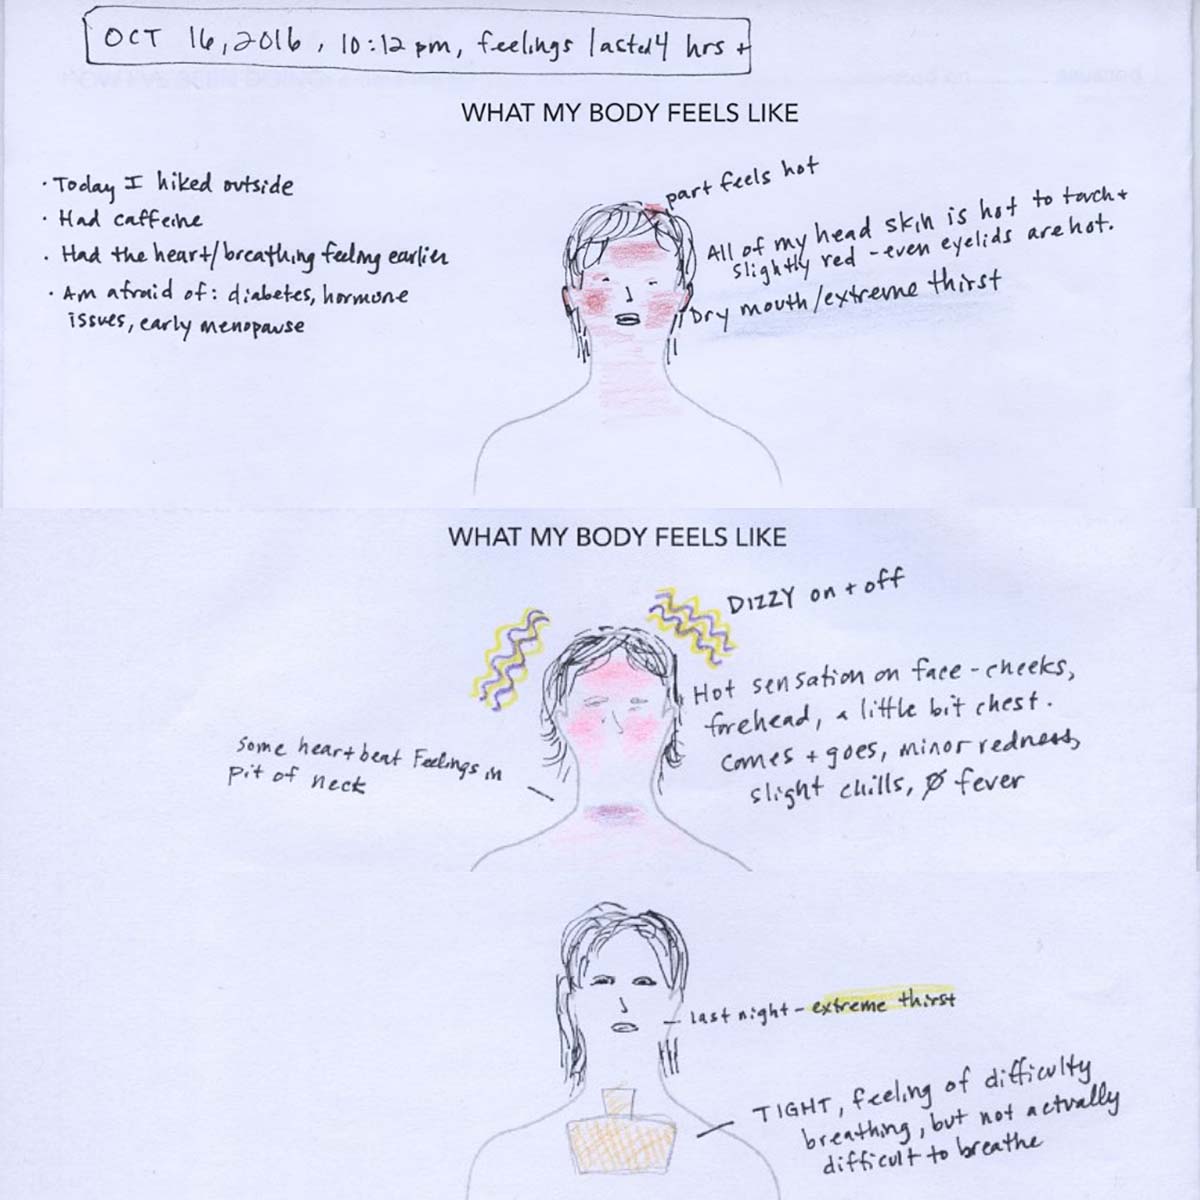 OCT 16, 2016, 10:12 pm, feelings lasted 4 hrs +
WHAT MY BODY FEELS LIKE
· Today I hiked outside
· Had caffeine
· Had the heart/breathing feeling earlier
· Am afraid of: diabetes, hormone
issues, early menopause
part feels hot
All of my head skin is hot to touch +
slightly red - even eyelids are hot.
Dry mouth/extreme thirst
WHAT MY BODY FEELS LIKE
DIZZY on + off
Hot sensation on face - cheeks,
forehead, a little bit chest.
comes + goes, minor redness,
slight chills, Ø fever
Some heartbeat Feelings in
pit of neck
last night - extreme thirst
TIGHT, feeling of difficulty
breathing, but not actually
difficult to breathe